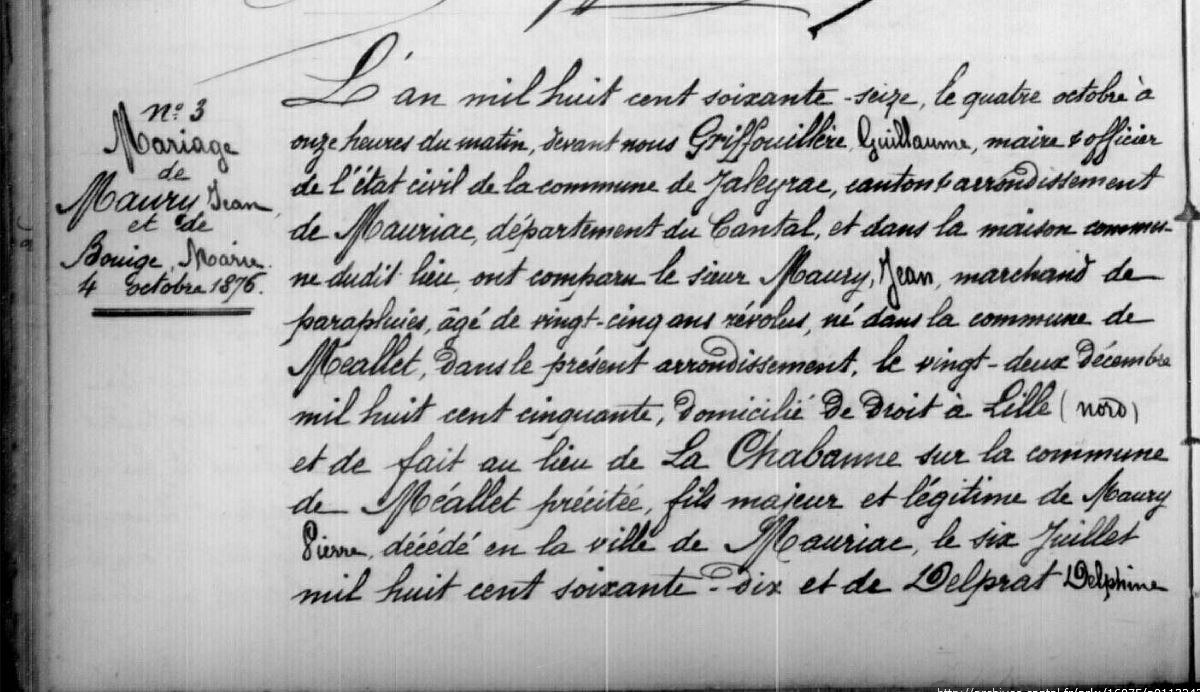 n.º 3
Mariage
de
Maury Jean
et de
Bouige, Marie.
4 octobre 1876.
L'an mil huit cent soixante-seize, le quatre octobre à
onze heures du matin, devant nous Griffouillère, Guillaume, maire & officier
de l'état civil de la commune de Jaleyrac, canton & arrondissement
de Mauriac, département du Cantal, et dans la maison commu-
ne dudit lieu, ont comparu le sieur Maury, Jean, marchand de
parapluies, âgé de vingt-cinq ans révolus, né dans la commune de
Méallet, dans le présent arrondissement, le vingt-deux décembre
mil huit cent cinquante, domicilié de droit à Lille (nord)
et de fait au lieu de La Chabanne sur la commune
de Méallet précitée, fils majeur et légitime de Maury
Pierre, décédé en la ville de Mauriac, le six Juillet
mil huit cent soixante-dix et de Delprat Delphine